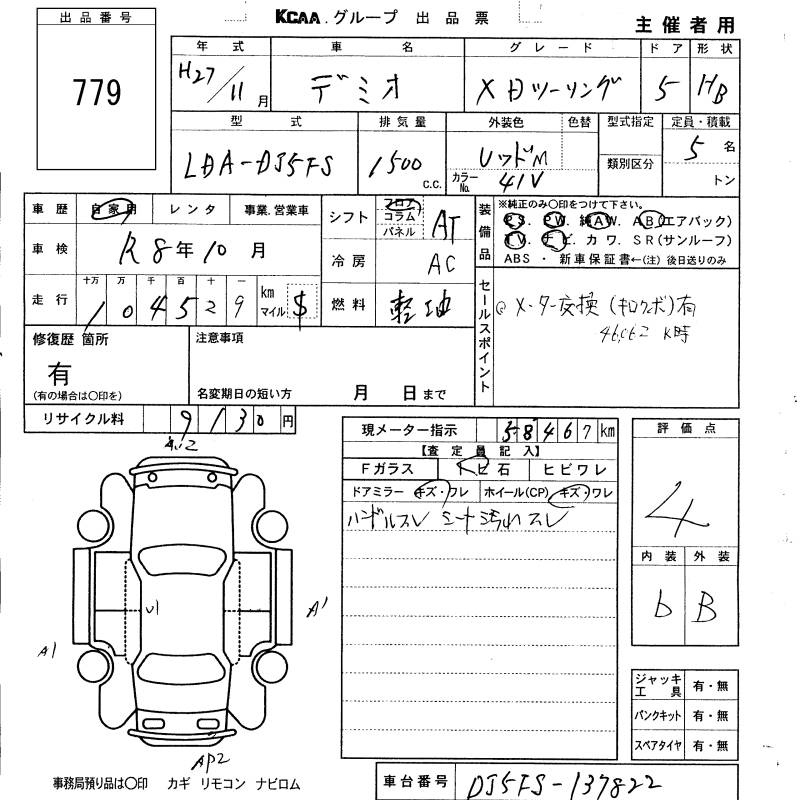 KCAA グループ 出品票
主催者用
出品番号
779
年式 車名 グレード ドア 形状
H27/11月 デミオ XDツーリング 5 HB
型式 排気量 外装色 色替 型式指定 定員・積載
LDA-DJ5FS 1500 c.c. レッドM 類別区分 5名
カラーNo. 41V トン
車歴 自家用 レンタ 事業.営業車
車検 R8年10月
走行 十万 万 千 百 十 一
104529 km マイル $
シフト フロア コラム パネル AT
冷房 AC
燃料 軽油
装備品 ※純正のみ〇印をつけて下さい。
PS. PW. 純AW. AB(エアバック)
TV. ナビ. カワ. SR(サンルーフ)
ABS ・ 新車保証書←(注) 後日送りのみ
セールスポイント
@メーター交換 (キロクボ)有
46,062 K時
修復歴 箇所 注意事項
有
(有の場合は〇印を) 名変期日の短い方 月 日まで
リサイクル料 9130円
現メーター指示 58467km
【査定員記入】
Fガラス トビ石 ヒビワレ
ドアミラー キズ・ワレ ホイール(CP) キズ・ワレ
ハンドルスレ シート汚れ スレ
評価点
4
内装 外装
b B
A1
A1
AP2
ジャッキ工具 有・無
パンクキット 有・無
スペアタイヤ 有・無
事務局預り品は〇印 カギ リモコン ナビロム
車台番号 DJ5FS-137822